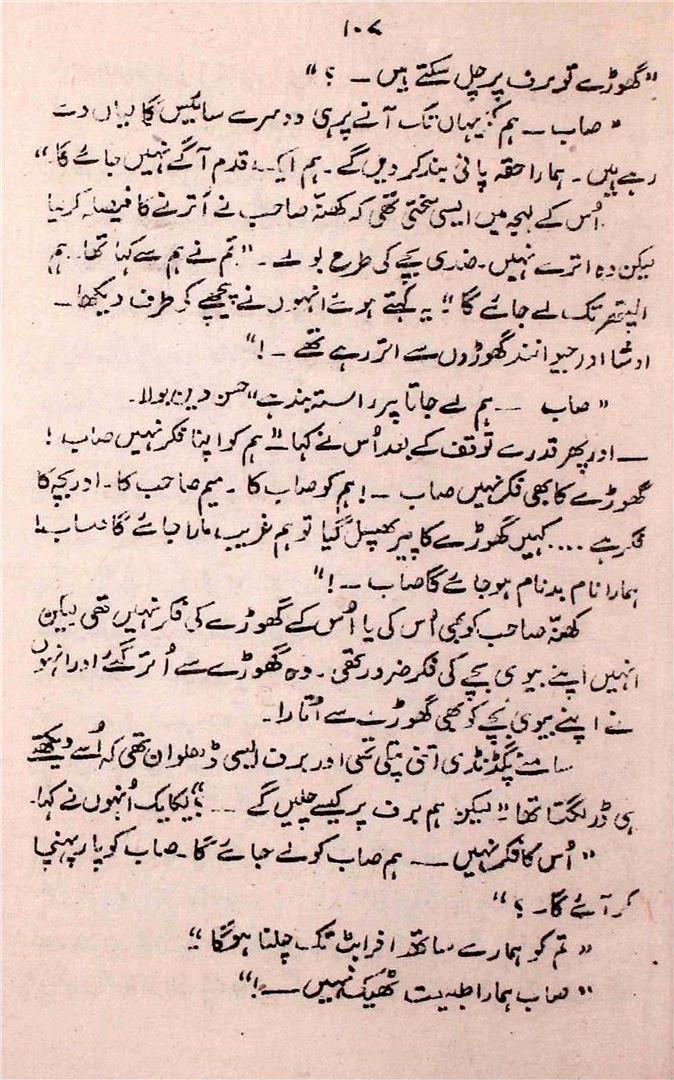 ۱۰۷
"گھوڑے تو برف پر چل سکتے ہیں ــ ؟"
"صاب ــ ہم کو یہاں تک آنے پر ہی دوسرے سائیس گا بیاں دے
رہے ہیں۔ ہمارا حقہ پانی بند کر دیں گے۔ ہم ایک قدم آگے نہیں جائے گا۔"
اُس کے لہجہ میں ایسی سختی تھی کہ کھنّہ صاحب نے اُترنے کا فیصلہ کر لیا
لیکن وہ اترے نہیں۔ ضدی بچے کی طرح بولے۔ "تم نے ہم سے کہا تھا۔ ہم
الپتھر تک لے جائے گا" یہ کہتے ہوئے انہوں نے پیچھے کی طرف دیکھا ــ
اوشا اور جیوانند گھوڑوں سے اتر رہے تھے ــ !"
"صاب ــ ہم لے جاتا پر راستہ بند ہے" حسن دین بولا۔
ــ اور پھر قدرے توقف کے بعد اُس نے کہا "ہم کو اپنا فکر نہیں صاب !
گھوڑے کا بھی فکر نہیں صاب ــ ! ہم کو صاب کا۔ میم صاحب کا۔ اور بچہ کا
فکر ہے .... کہیں گھوڑے کا پیر پھسل گیا تو ہم غریب مارا جائے گا صاب !
ہمارا نام بدنام ہو جائے گا صاب ــ !"
کھنّہ صاحب کو بھی اُس کی یا اُس کے گھوڑے کی فکر نہیں تھی لیکن
انہیں اپنے بیوی بچے کی فکر ضرور تھی۔ وہ گھوڑے سے اُتر گئے اور انہوں
نے اپنے بیوی بچے کو بھی گھوڑے سے اُتارا۔
سامنے پگڈنڈی اتنی پتلی تھی اور برف ایسی ڈھلوان تھی کہ اُسے دیکھتے
ہی ڈر لگتا تھا "لیکن ہم برف پر کیسے چلیں گے ــ ؟" یکایک اُنہوں نے کہا۔
"اُس کا فکر نہیں ــ ہم صاب کو لے جائے گا۔ صاب کو پار پہنچا
کر آئے گا۔ ؟"
"تم کو ہمارے ساتھ افرابٹ تک چلنا ہوگا"
"صاب ہمارا طبیعت ٹھیک نہیں ــ !"